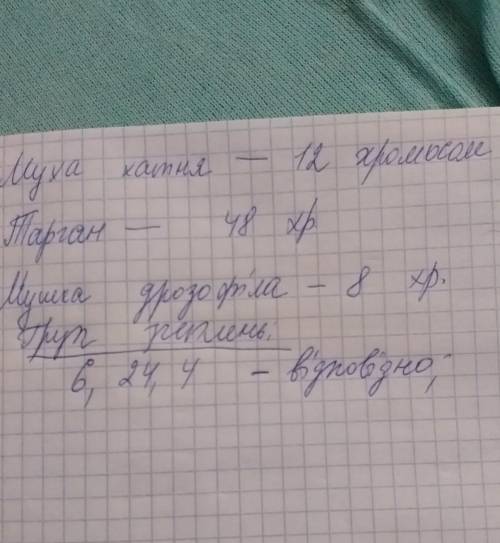 Муха хатня — 12 хромосом
Тарган — 48 хр
Мушка дрозофіла – 8 хр.
Груп зчеплень.
6, 24, 4 – відповідно;